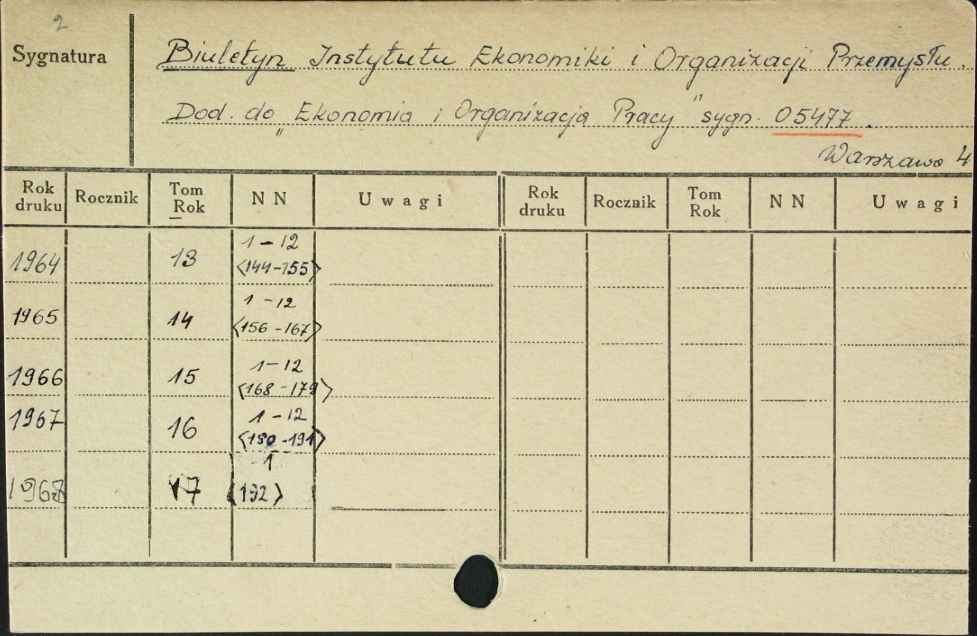 2
Sygnatura
Biuletyn Instytutu Ekonomiki i Organizacji Przemysłu.
Dod. do „Ekonomia i Organizacja Pracy" sygn. 05477.
Warszawa 4
Rok druku Rocznik Tom Rok NN Uwagi Rok druku Rocznik Tom Rok NN Uwagi
1964 13 1-12 <144-155>
1965 14 1-12 <156-167>
1966 15 1-12 <168-179>
1967 16 1-12 <180-191>
17 1 <192>